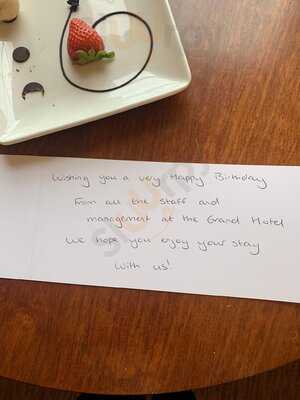 Wishing you a very Happy Birthday
from all the staff and
management at the Grand Hotel
We hope you enjoy your stay
with us!